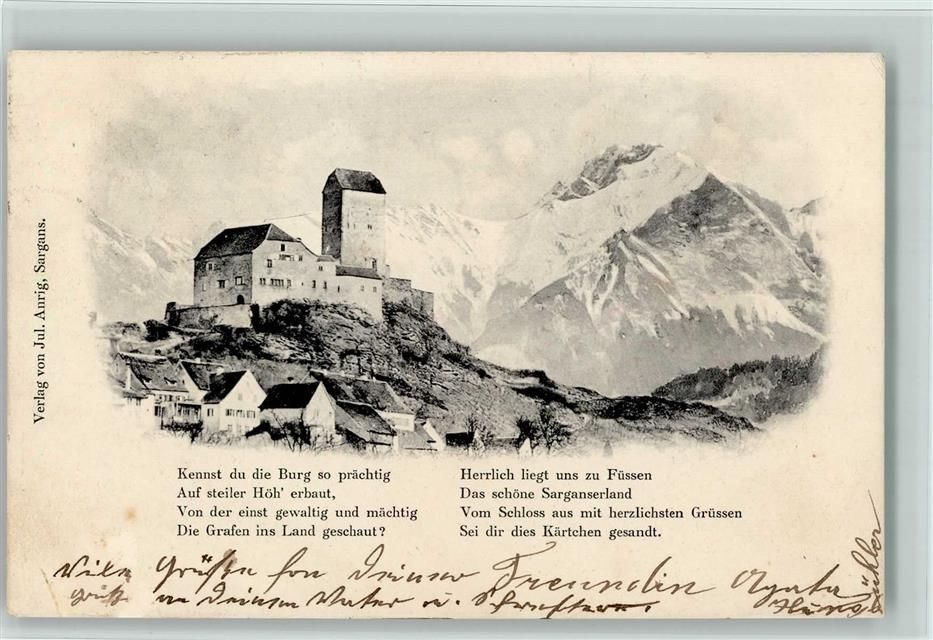 Verlag von Jul. Anrig, Sargans.
Kennst du die Burg so prächtig
Auf steiler Höh' erbaut,
Von der einst gewaltig und mächtig
Die Grafen ins Land geschaut?
Herrlich liegt uns zu Füssen
Das schöne Sarganserland
Vom Schloss aus mit herzlichsten Grüssen
Sei dir dies Kärtchen gesandt.
Viele Grüße von deiner Freundin Agatha
an deinen Vater u. Schwestern.